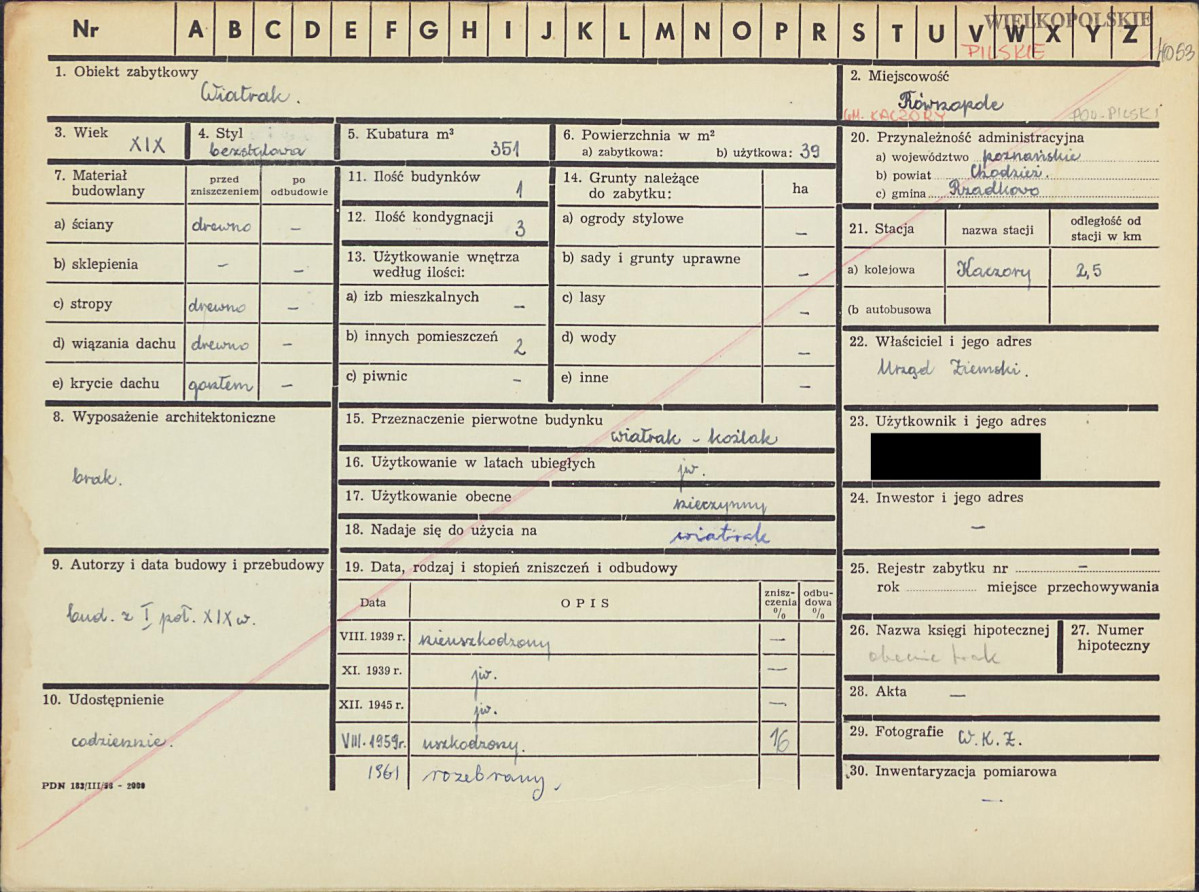 Nr A B C D E F G H I J K L M N O P R S T U V W X Y Z
WIELKOPOLSKIE
PILSKIE
4053
1. Obiekt zabytkowy
Wiatrak.
2. Miejscowość
Równopole
GM. KACZORY
POW. PILSKI
3. Wiek
XIX
4. Styl
bezstylowa
5. Kubatura m³
351
6. Powierzchnia w m²
a) zabytkowa: b) użytkowa: 39
7. Materiał budowlany
przed zniszczeniem
po odbudowie
a) ściany drewno –
b) sklepienia – –
c) stropy drewno –
d) wiązania dachu drewno –
e) krycie dachu gontem –
8. Wyposażenie architektoniczne
brak.
9. Autorzy i data budowy i przebudowy
bud. z I poł. XIX w.
10. Udostępnienie
codziennie.
PDN 182/III/56 - 2000
11. Ilość budynków
1
12. Ilość kondygnacji
3
13. Użytkowanie wnętrza
według ilości:
a) izb mieszkalnych –
b) innych pomieszczeń 2
c) piwnic –
14. Grunty należące
do zabytku:
ha
a) ogrody stylowe –
b) sady i grunty uprawne –
c) lasy –
d) wody –
e) inne –
15. Przeznaczenie pierwotne budynku
wiatrak – koźlak
16. Użytkowanie w latach ubiegłych
jw.
17. Użytkowanie obecne
nieczynny
18. Nadaje się do użycia na
wiatrak
19. Data, rodzaj i stopień zniszczeń i odbudowy
Data OPIS znisz-czenia % odbu-dowa %
VIII. 1939 r. nieuszkodzony –
XI. 1939 r. jw. –
XII. 1945 r. jw. –
VIII. 1959 r. uszkodzony. 16
1961 rozebrany.
20. Przynależność administracyjna
a) województwo poznańskie
b) powiat Chodzież.
c) gmina Rzadkowo
21. Stacja nazwa stacji odległość od stacji w km
a) kolejowa Kaczory 2,5
(b autobusowa
22. Właściciel i jego adres
Urząd Ziemski.
23. Użytkownik i jego adres
24. Inwestor i jego adres
–
25. Rejestr zabytku nr –
rok miejsce przechowywania
26. Nazwa księgi hipotecznej
obecnie brak
27. Numer hipoteczny
28. Akta –
29. Fotografie W.K.Z.
30. Inwentaryzacja pomiarowa
–